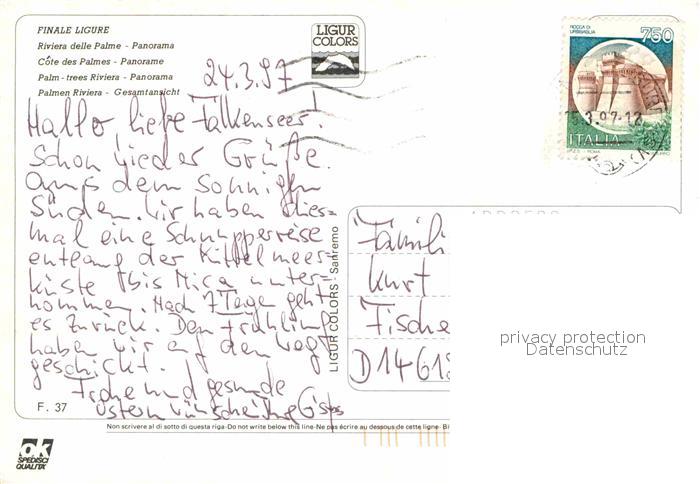 FINALE LIGURE
Riviera delle Palme - Panorama
Côte des Palmes - Panorame
Palm-trees Riviera - Panorama
Palmen Riviera - Gesamtansicht
LIGUR
COLORS
ROCCA DI
URBISAGLIA
750
ITALIA
24.3.97
Hallo liebe Falkenseer!
Schon wieder Grüße
aus dem sonnigen
Süden. Wir haben dies=
mal eine Schnupperreise
entlang der Mittelmeer=
küste bis Nica unter=
nommen. Nach 7 Tagen geht
es zurück. Den Frühling
haben wir auf den Weg
geschickt.
Frohe und gesunde
Ostern wünschen
LIGUR COLORS - Sanremo
Famili
Kurt
Fische
D 1461
privacy protection
Datenschutz
F. 37
Non scrivere al di sotto di questa riga-Do not write below this line-Ne pas écrire au dessous de cette ligne-Bi
ok
SPEDISCI
QUALITA'